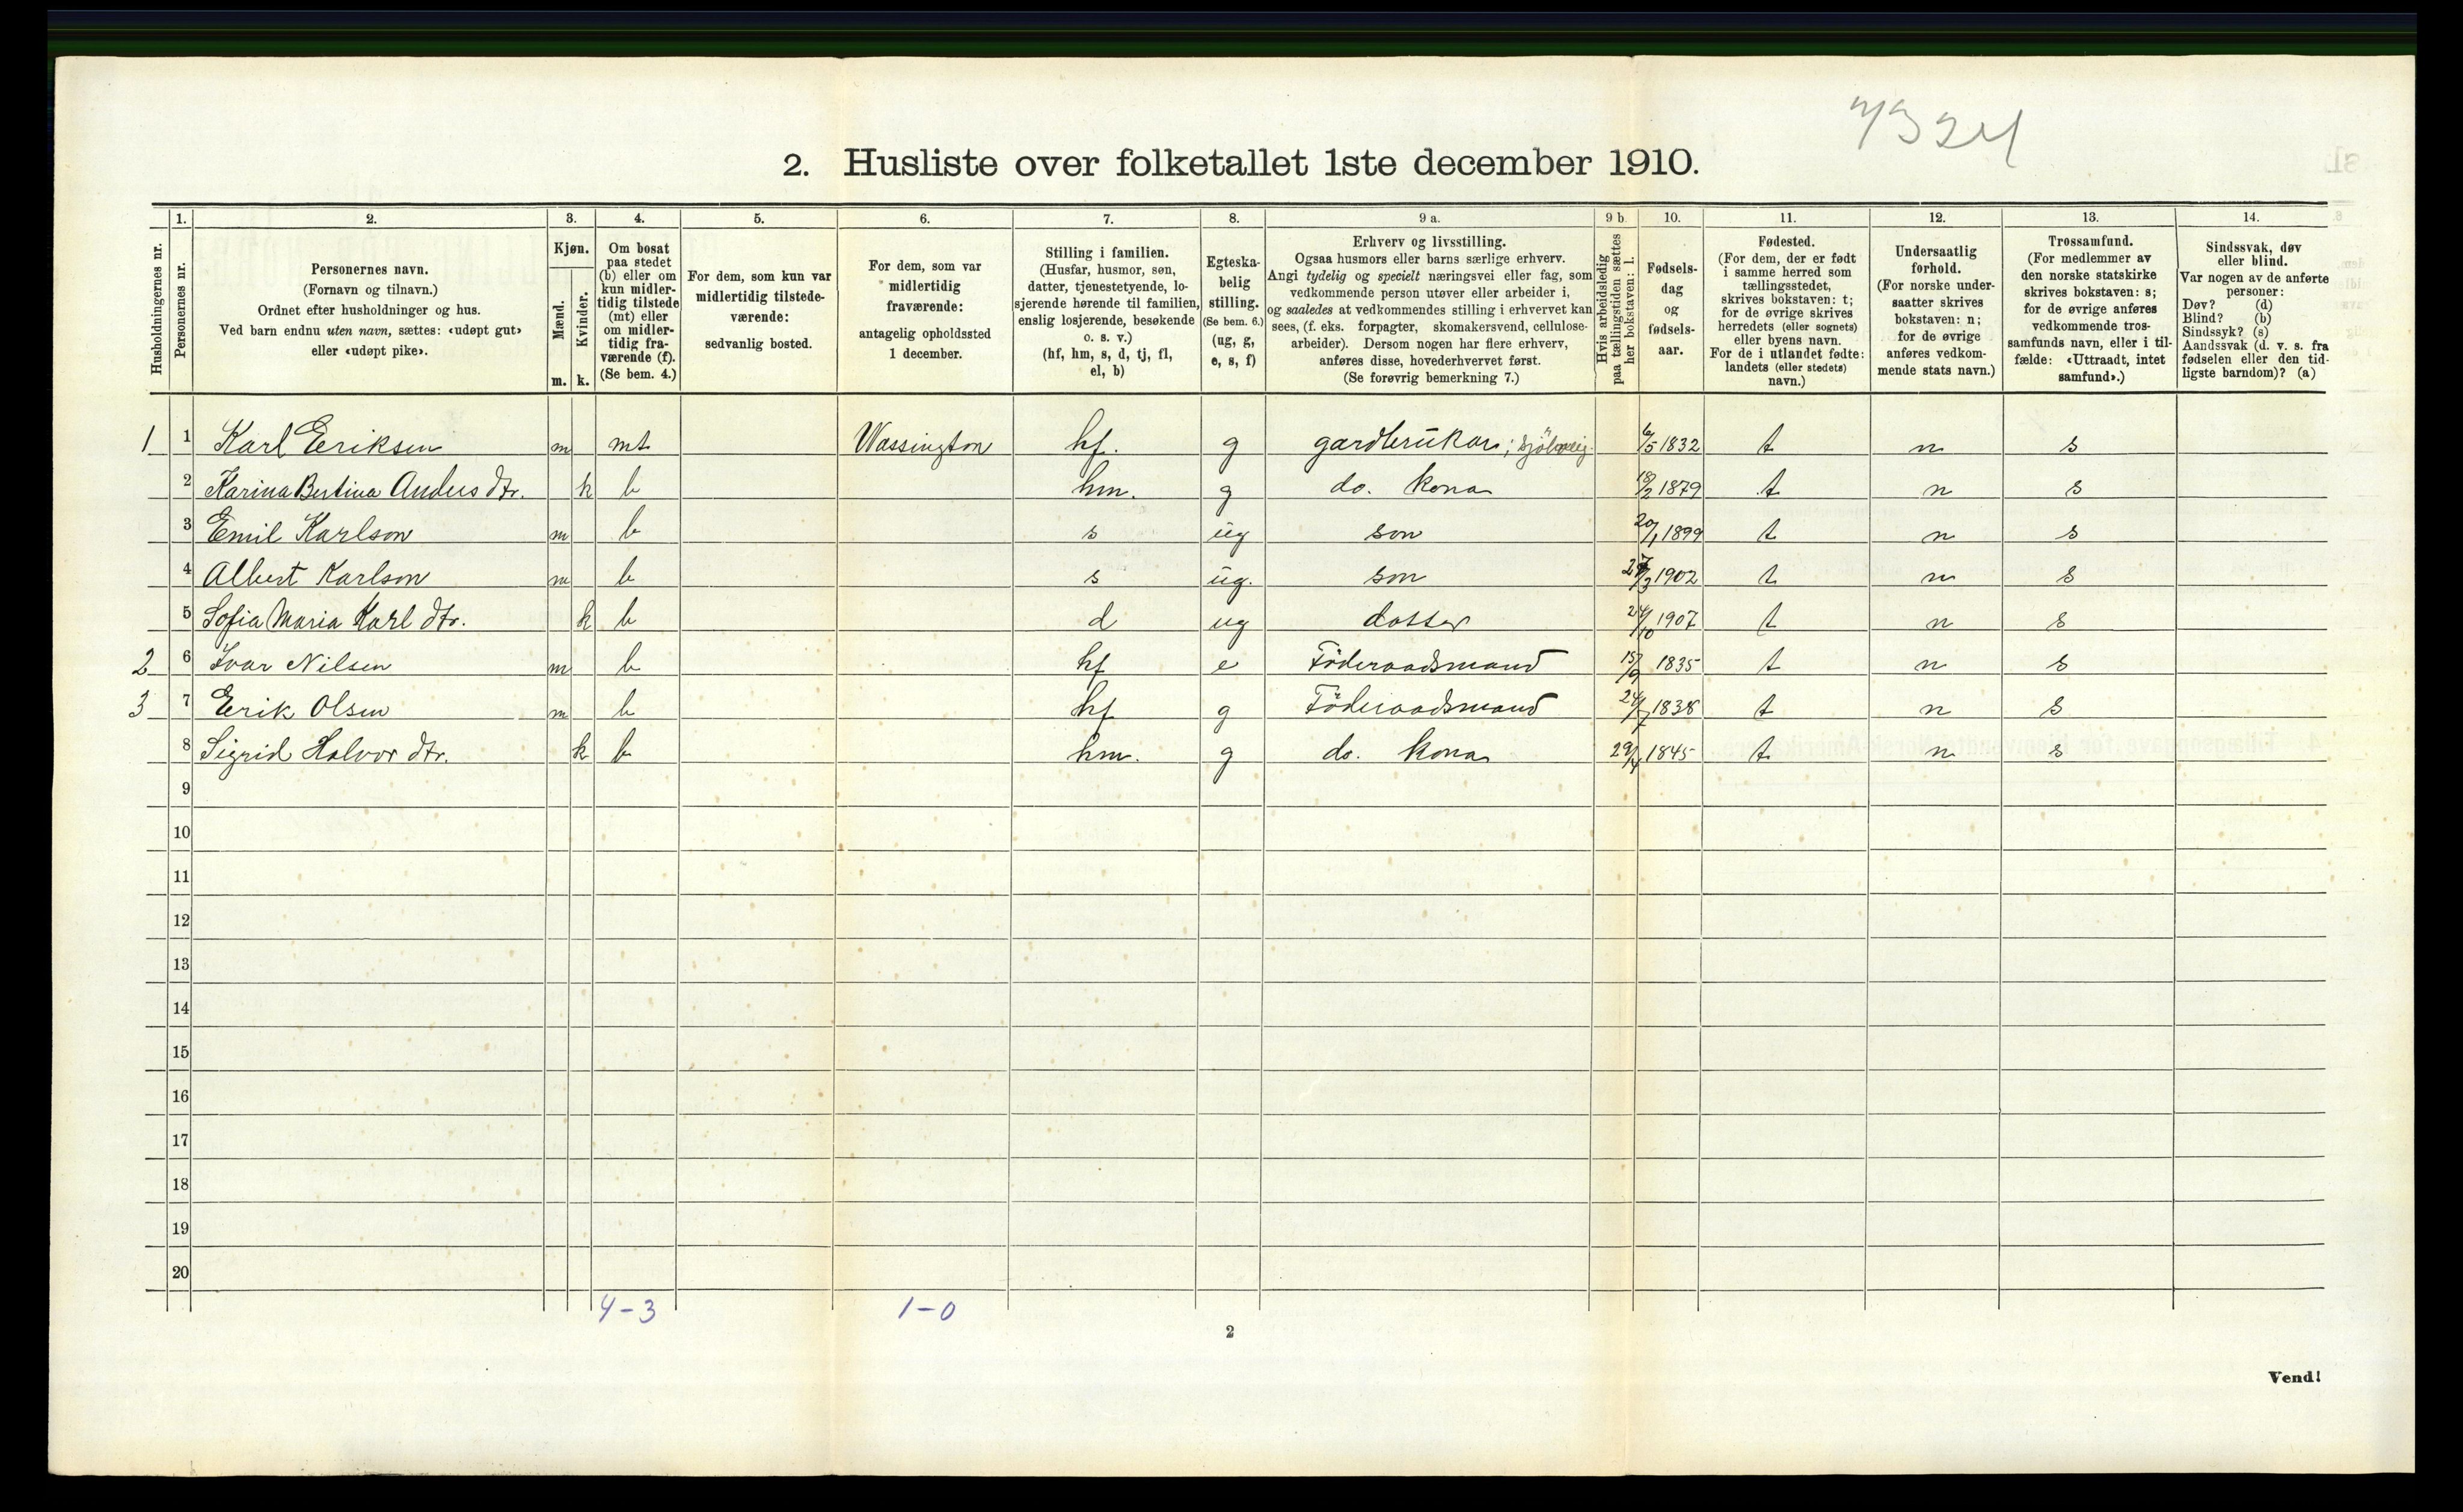 7324
2. Husliste over folketallet 1ste december 1910.
Husholdningernes nr.
1.
Personernes nr.
2.
Personernes navn.
(Fornavn og tilnavn.)
Ordnet efter husholdninger og hus.
Ved barn endnu uten navn, sættes: «udøpt gut»
eller «udøpt pike».
3.
Kjøn.
Mænd.
Kvinder.
m. k.
4.
Om bosat
paa stedet
(b) eller om
kun midler-
tidig tilstede
(mt) eller
om midler-
tidig fra-
værende (f).
(Se bem. 4.)
5.
For dem, som kun var
midlertidig tilstede-
værende:
sedvanlig bosted.
6.
For dem, som var
midlertidig
fraværende:
antagelig opholdssted
1 december.
7.
Stilling i familien.
(Husfar, husmor, søn,
datter, tjenestetyende, lo-
sjerende hørende til familien,
enslig losjerende, besøkende
o. s. v.)
(hf, hm, s, d, tj, fl,
el, b)
8.
Egteska-
belig
stilling.
(Se bem. 6.)
(ug, g,
e, s, f)
9 a.
Erhverv og livsstilling.
Ogsaa husmors eller barns særlige erhverv.
Angi tydelig og specielt næringsvei eller fag, som
vedkommende person utøver eller arbeider i,
og saaledes at vedkommendes stilling i erhvervet kan
sees, (f. eks. forpagter, skomakersvend, cellulose-
arbeider). Dersom nogen har flere erhverv,
anføres disse, hovederhvervet først.
(Se forøvrig bemerkning 7.)
9 b
Hvis arbeidsledig
paa tællingstiden sættes
her bokstaven: l.
10.
Fødsels-
dag
og
fødsels-
aar.
11.
Fødested.
(For dem, der er født
i samme herred som
tællingsstedet,
skrives bokstaven: t;
for de øvrige skrives
herredets (eller sognets)
eller byens navn.
For de i utlandet fødte:
landets (eller stedets)
navn.)
12.
Undersaatlig
forhold.
(For norske under-
saatter skrives
bokstaven: n;
for de øvrige
anføres vedkom-
mende stats navn.)
13.
Trossamfund.
(For medlemmer av
den norske statskirke
skrives bokstaven: s;
for de øvrige anføres
vedkommende tros-
samfunds navn, eller i til-
fælde: «Uttraadt, intet
samfund».)
14.
Sindssvak, døv
eller blind.
Var nogen av de anførte
personer:
Døv? (d)
Blind? (b)
Sindssyk? (s)
Aandssvak (d. v. s. fra
fødselen eller den tid-
ligste barndom)? (a)
1 1 Karl Eriksen m mt Wassington hf. g gardbrukar; 6/5 1832 t n s
2 Karina Bertina Anders dtr. k b hm. g do. kona 18/2 1879 t n s
3 Emil Karlson m b s ug son 20/1 1899 t n s
4 Albert Karlson m b s ug. son 1902 t n s
5 Sofia Maria Karl dtr. k b d ug dotter 24/10 1907 t n s
2 6 Ivar Nilsen m b hf e Föderaadsmand 15/9 1835 t n s
3 7 Erik Olsen m b hf g Föderaadsmand 24/7 1838 t n s
8 Sigrid Halvor dtr. k b hm. g do. kona 29/4 1845 t n s
9
10
11
12
13
14
15
16
17
18
19
20
4-3 1-0
2
Vend!